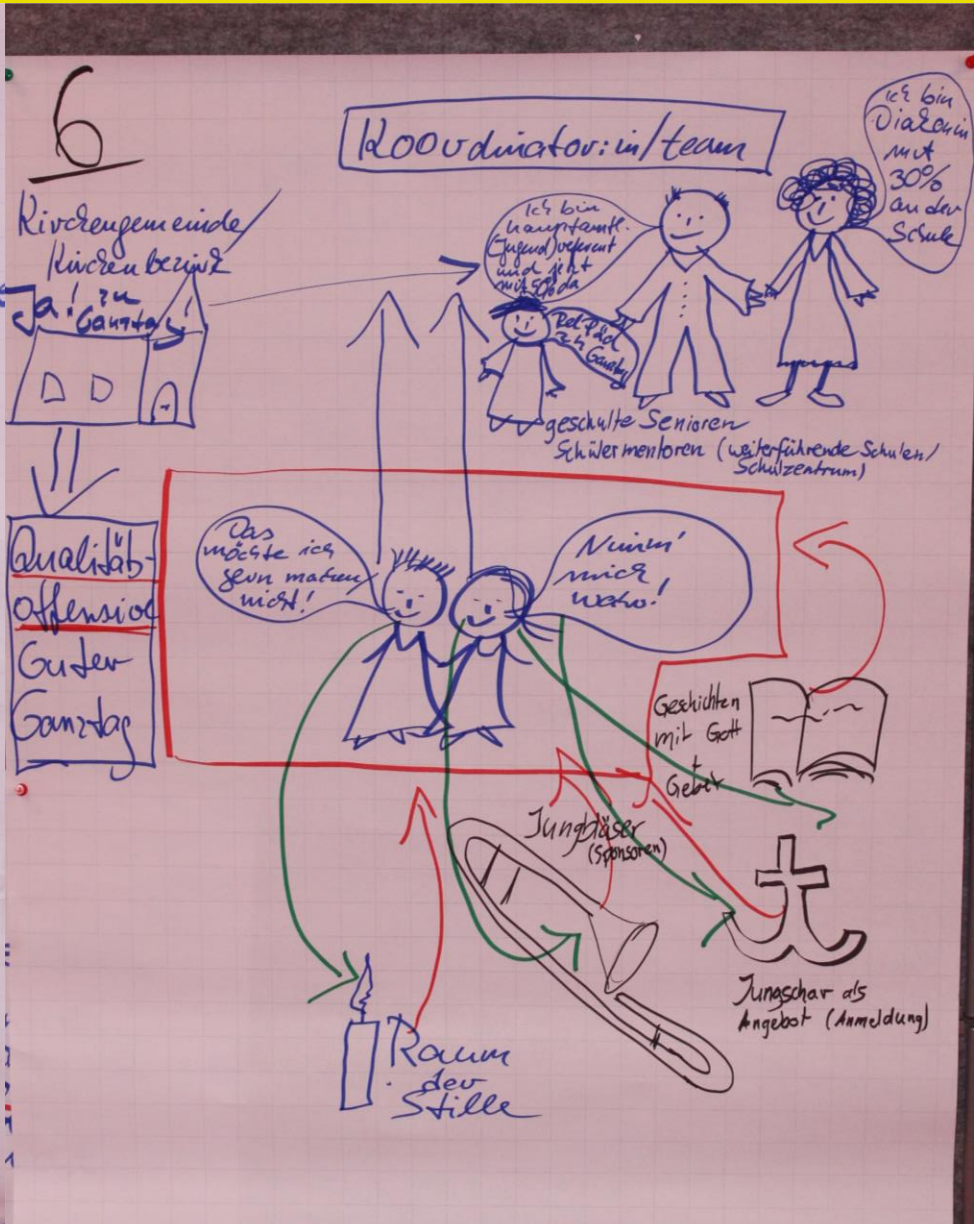 6
Koordinator:in/team
Ich bin
Diakonin
mit
30%
an der
Schule
Kirchengemeinde/
Kirchenbezirk
Ja! zu
Ganztag!
Ich bin
hauptamtl.
(Jugend)referent
und jetzt
mit
da
Rel.Päd
Ganztag
geschulte Senioren
Schülermentoren (weiterführende Schulen/
Schulzentrum)
Qualitäts-
offensive
Guter
Ganztag
Das
möchte ich
gern machen
nicht!
Nimm'
mich
wahr!
Geschichten
mit Gott
+
Gebet
Jungbläser
(Sponsoren)
Jungschar als
Angebot (Anmeldung)
Raum
der
Stille